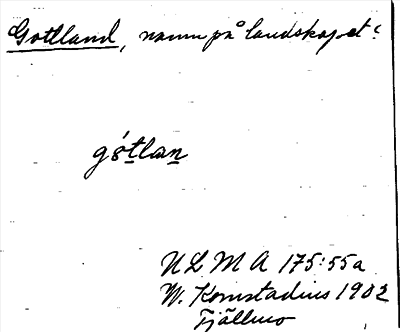 Gottland, namn på landskapet
gótlan
ULMA 175:55a
W. Komstadius 1902
Fjällmo